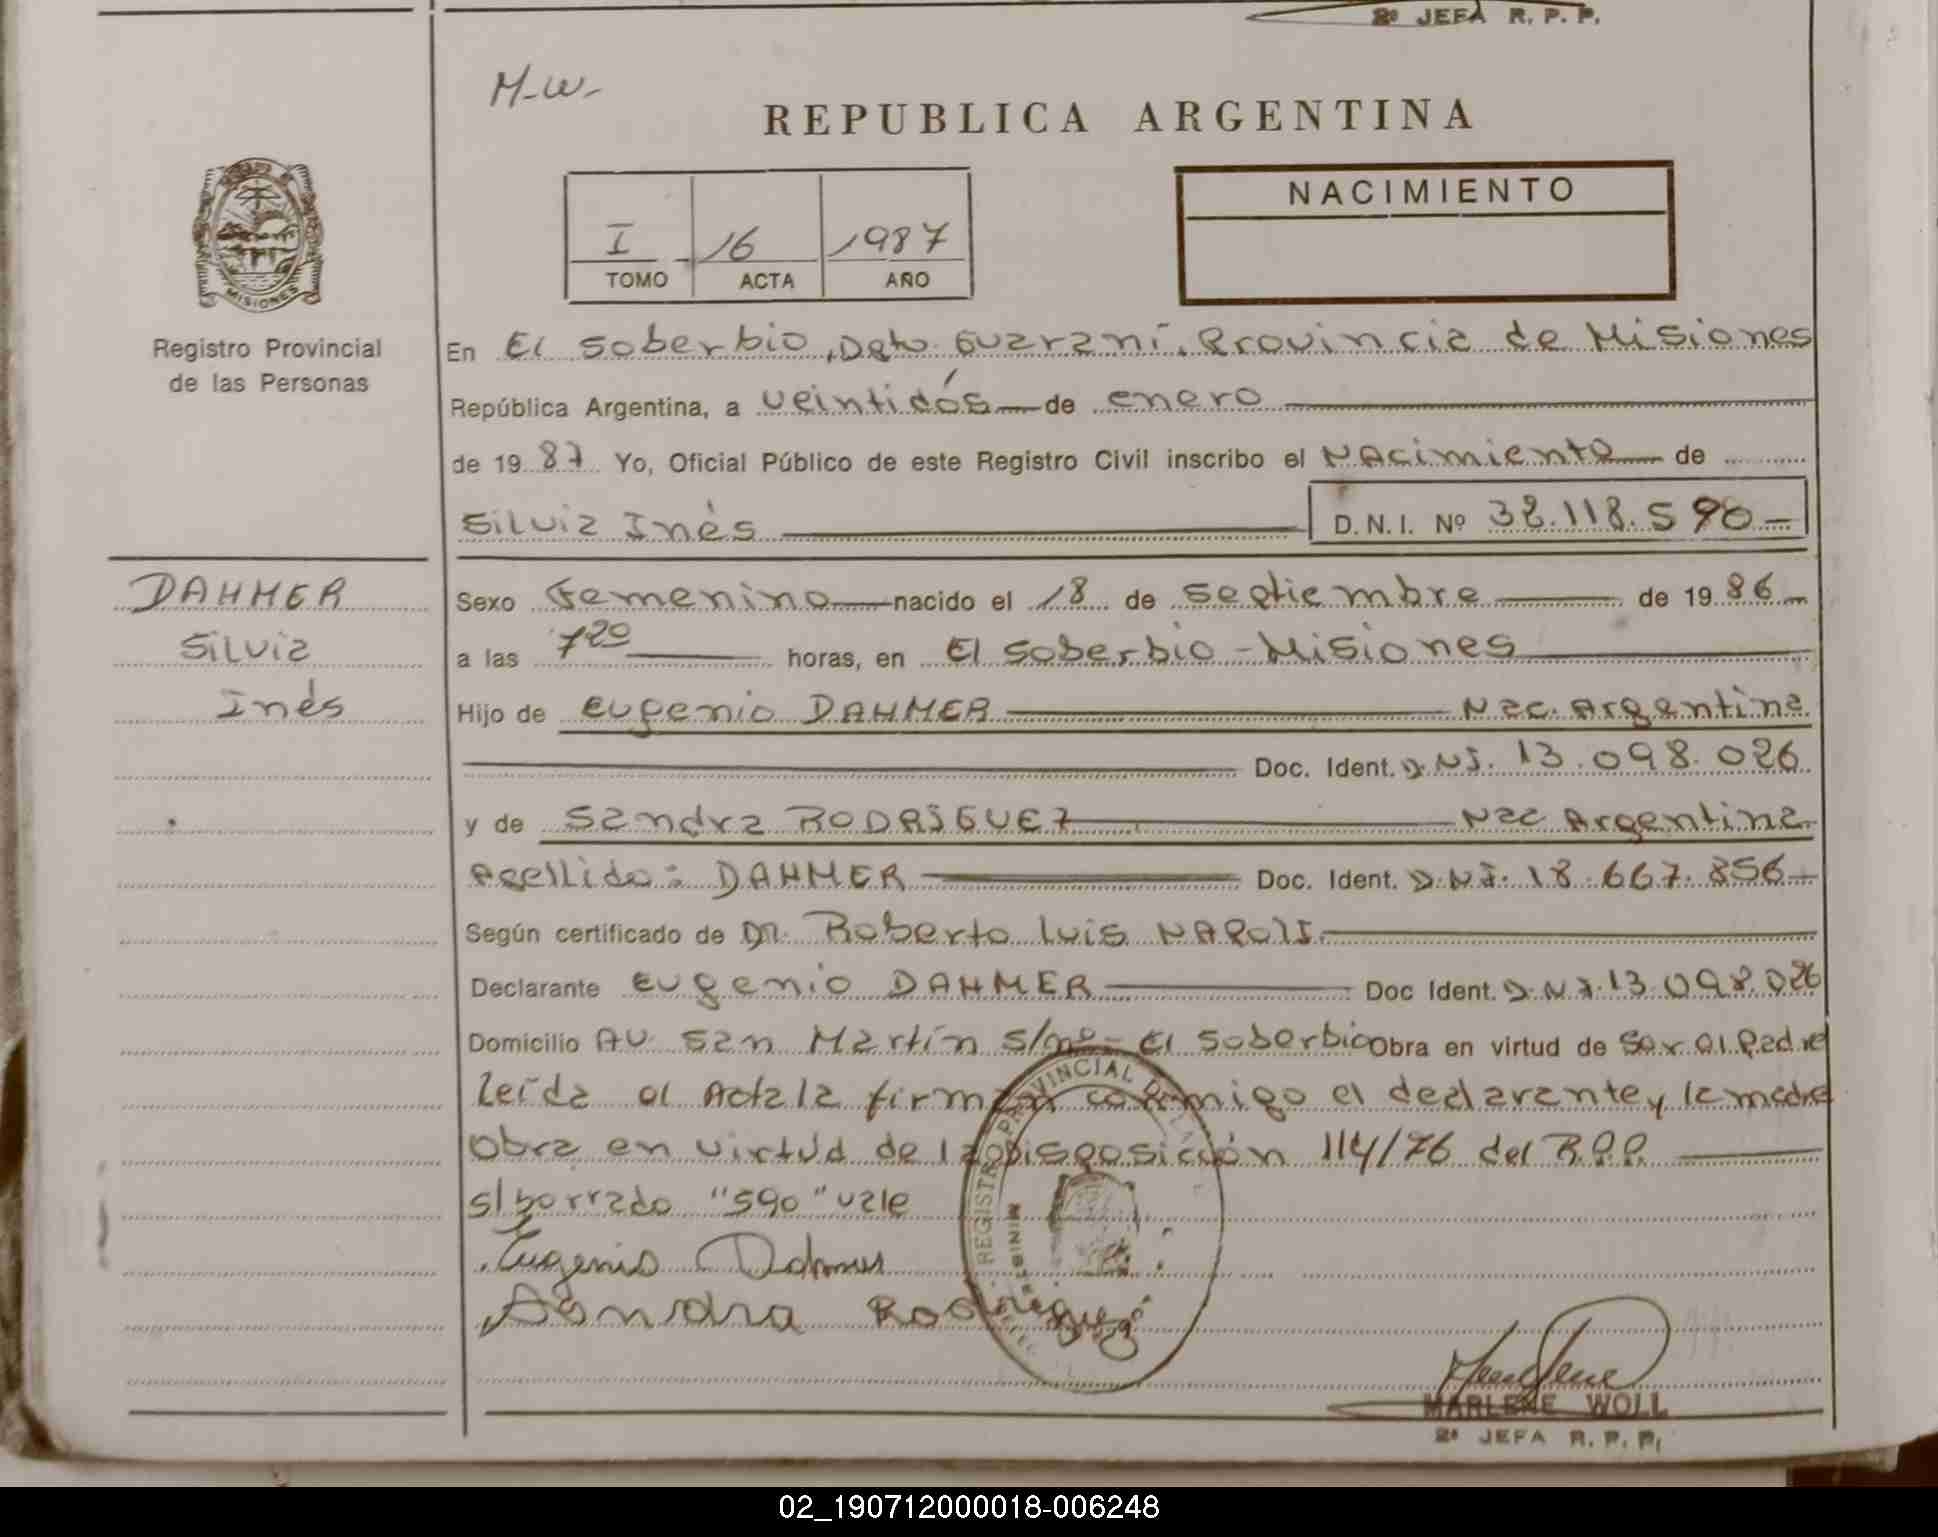 2º JEFA R. P. P.
M-W-
REPUBLICA ARGENTINA
NACIMIENTO
I 16 1987
TOMO ACTA AÑO
MISIONES
Registro Provincial
de las Personas
En El Soberbio, Dpto. Guaraní, Provincia de Misiones
República Argentina, a veintidós de enero
de 1987 Yo, Oficial Público de este Registro Civil inscribo el Nacimiento de
Silvia Inés D.N.I. Nº 32.118.590-
DAHMER
Silvia
Inés
Sexo Femenino nacido el 18 de septiembre de 1986
a las 7 20 horas, en El Soberbio - Misiones
Hijo de Eugenio DAHMER Nac. Argentina
Doc. Ident. D.N.I. 13.098.026
y de Sandra RODRIGUEZ Nac Argentina
Apellido: DAHMER Doc. Ident. D.N.I. 18.667.856
Según certificado de Dr. Roberto Luis NAPOLI
Declarante Eugenio DAHMER Doc Ident. D.N.I. 13.098.026
Domicilio AV. San Martín s/nº - El Soberbio Obra en virtud de Ser el Padre
Leída el Acta la firman conmigo el declarante y la madre
Obra en virtud de la Disposición 114/76 del R.P.P.
s/borrado "590" vale
Eugenio Dahmer
Sandra Rodriguez
REGISTRO PROVINCIAL DE L
MINISTER
MARLENE WOLL
2º JEFA R. P. P.
02_190712000018-006248